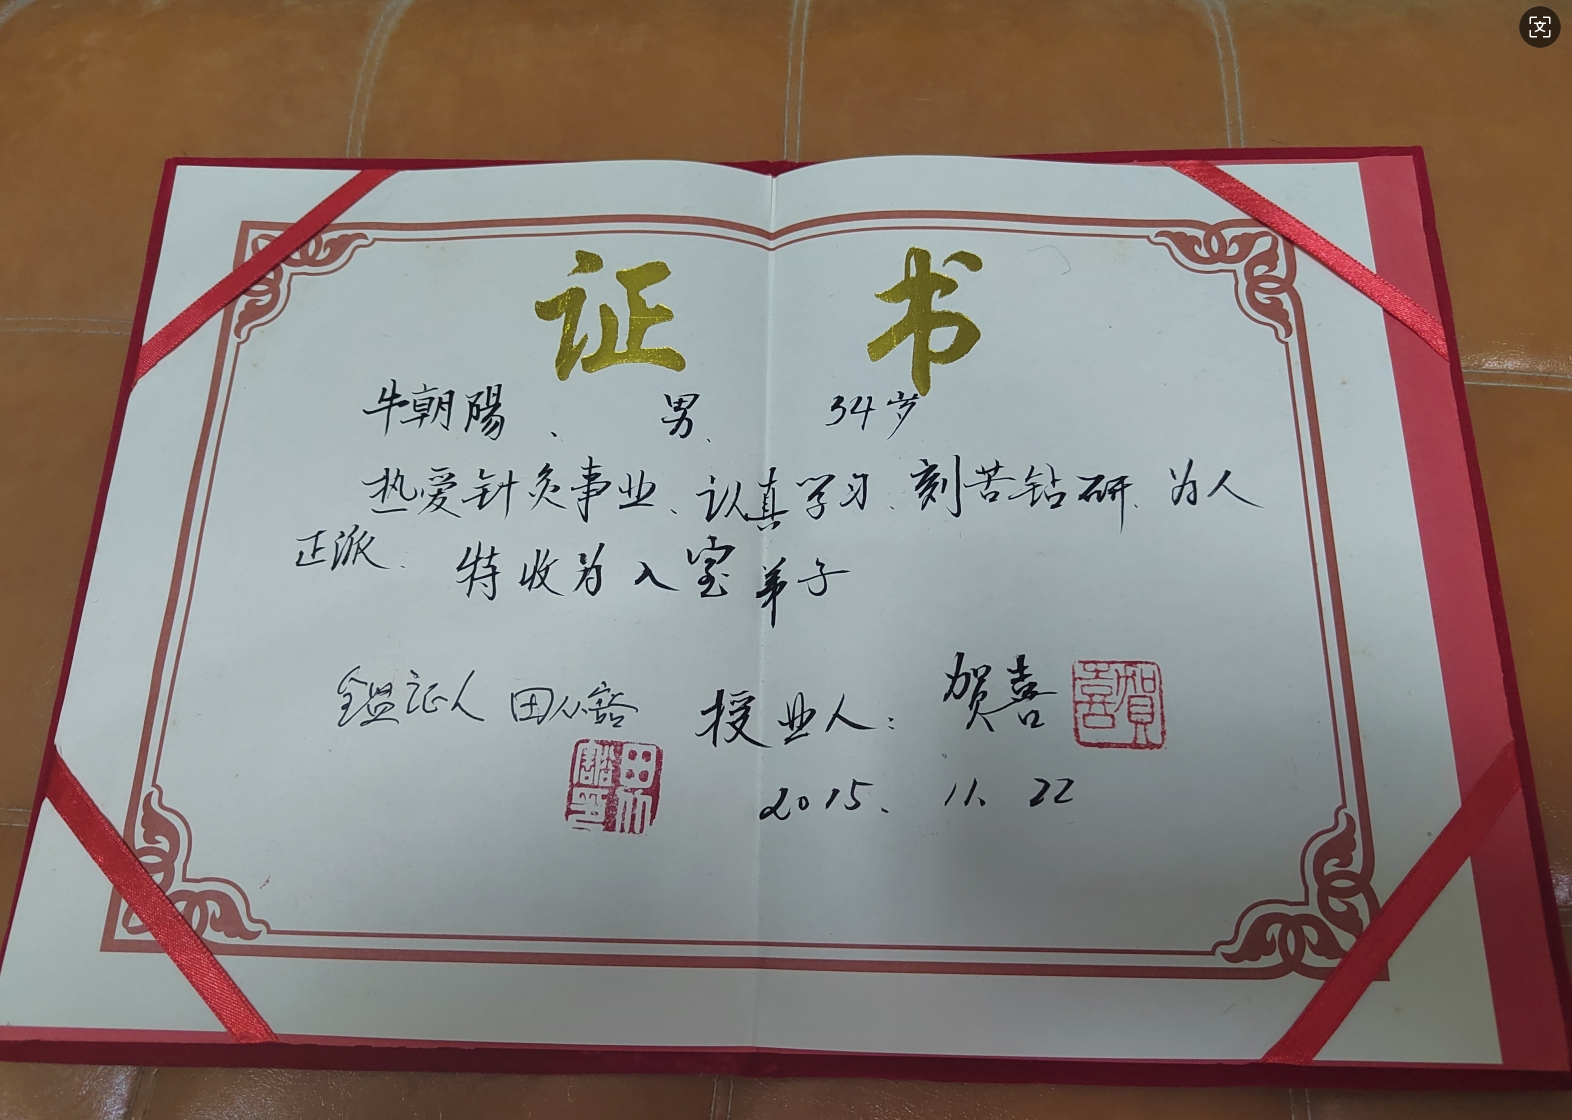 证 书
牛朝陽、 男、 34岁
热爱针灸事业、认真学习、刻苦钻研、为人
正派、 特收为入室弟子
鑑证人 田从豁 授业人: 贺喜
賀喜
2015. 11. 22